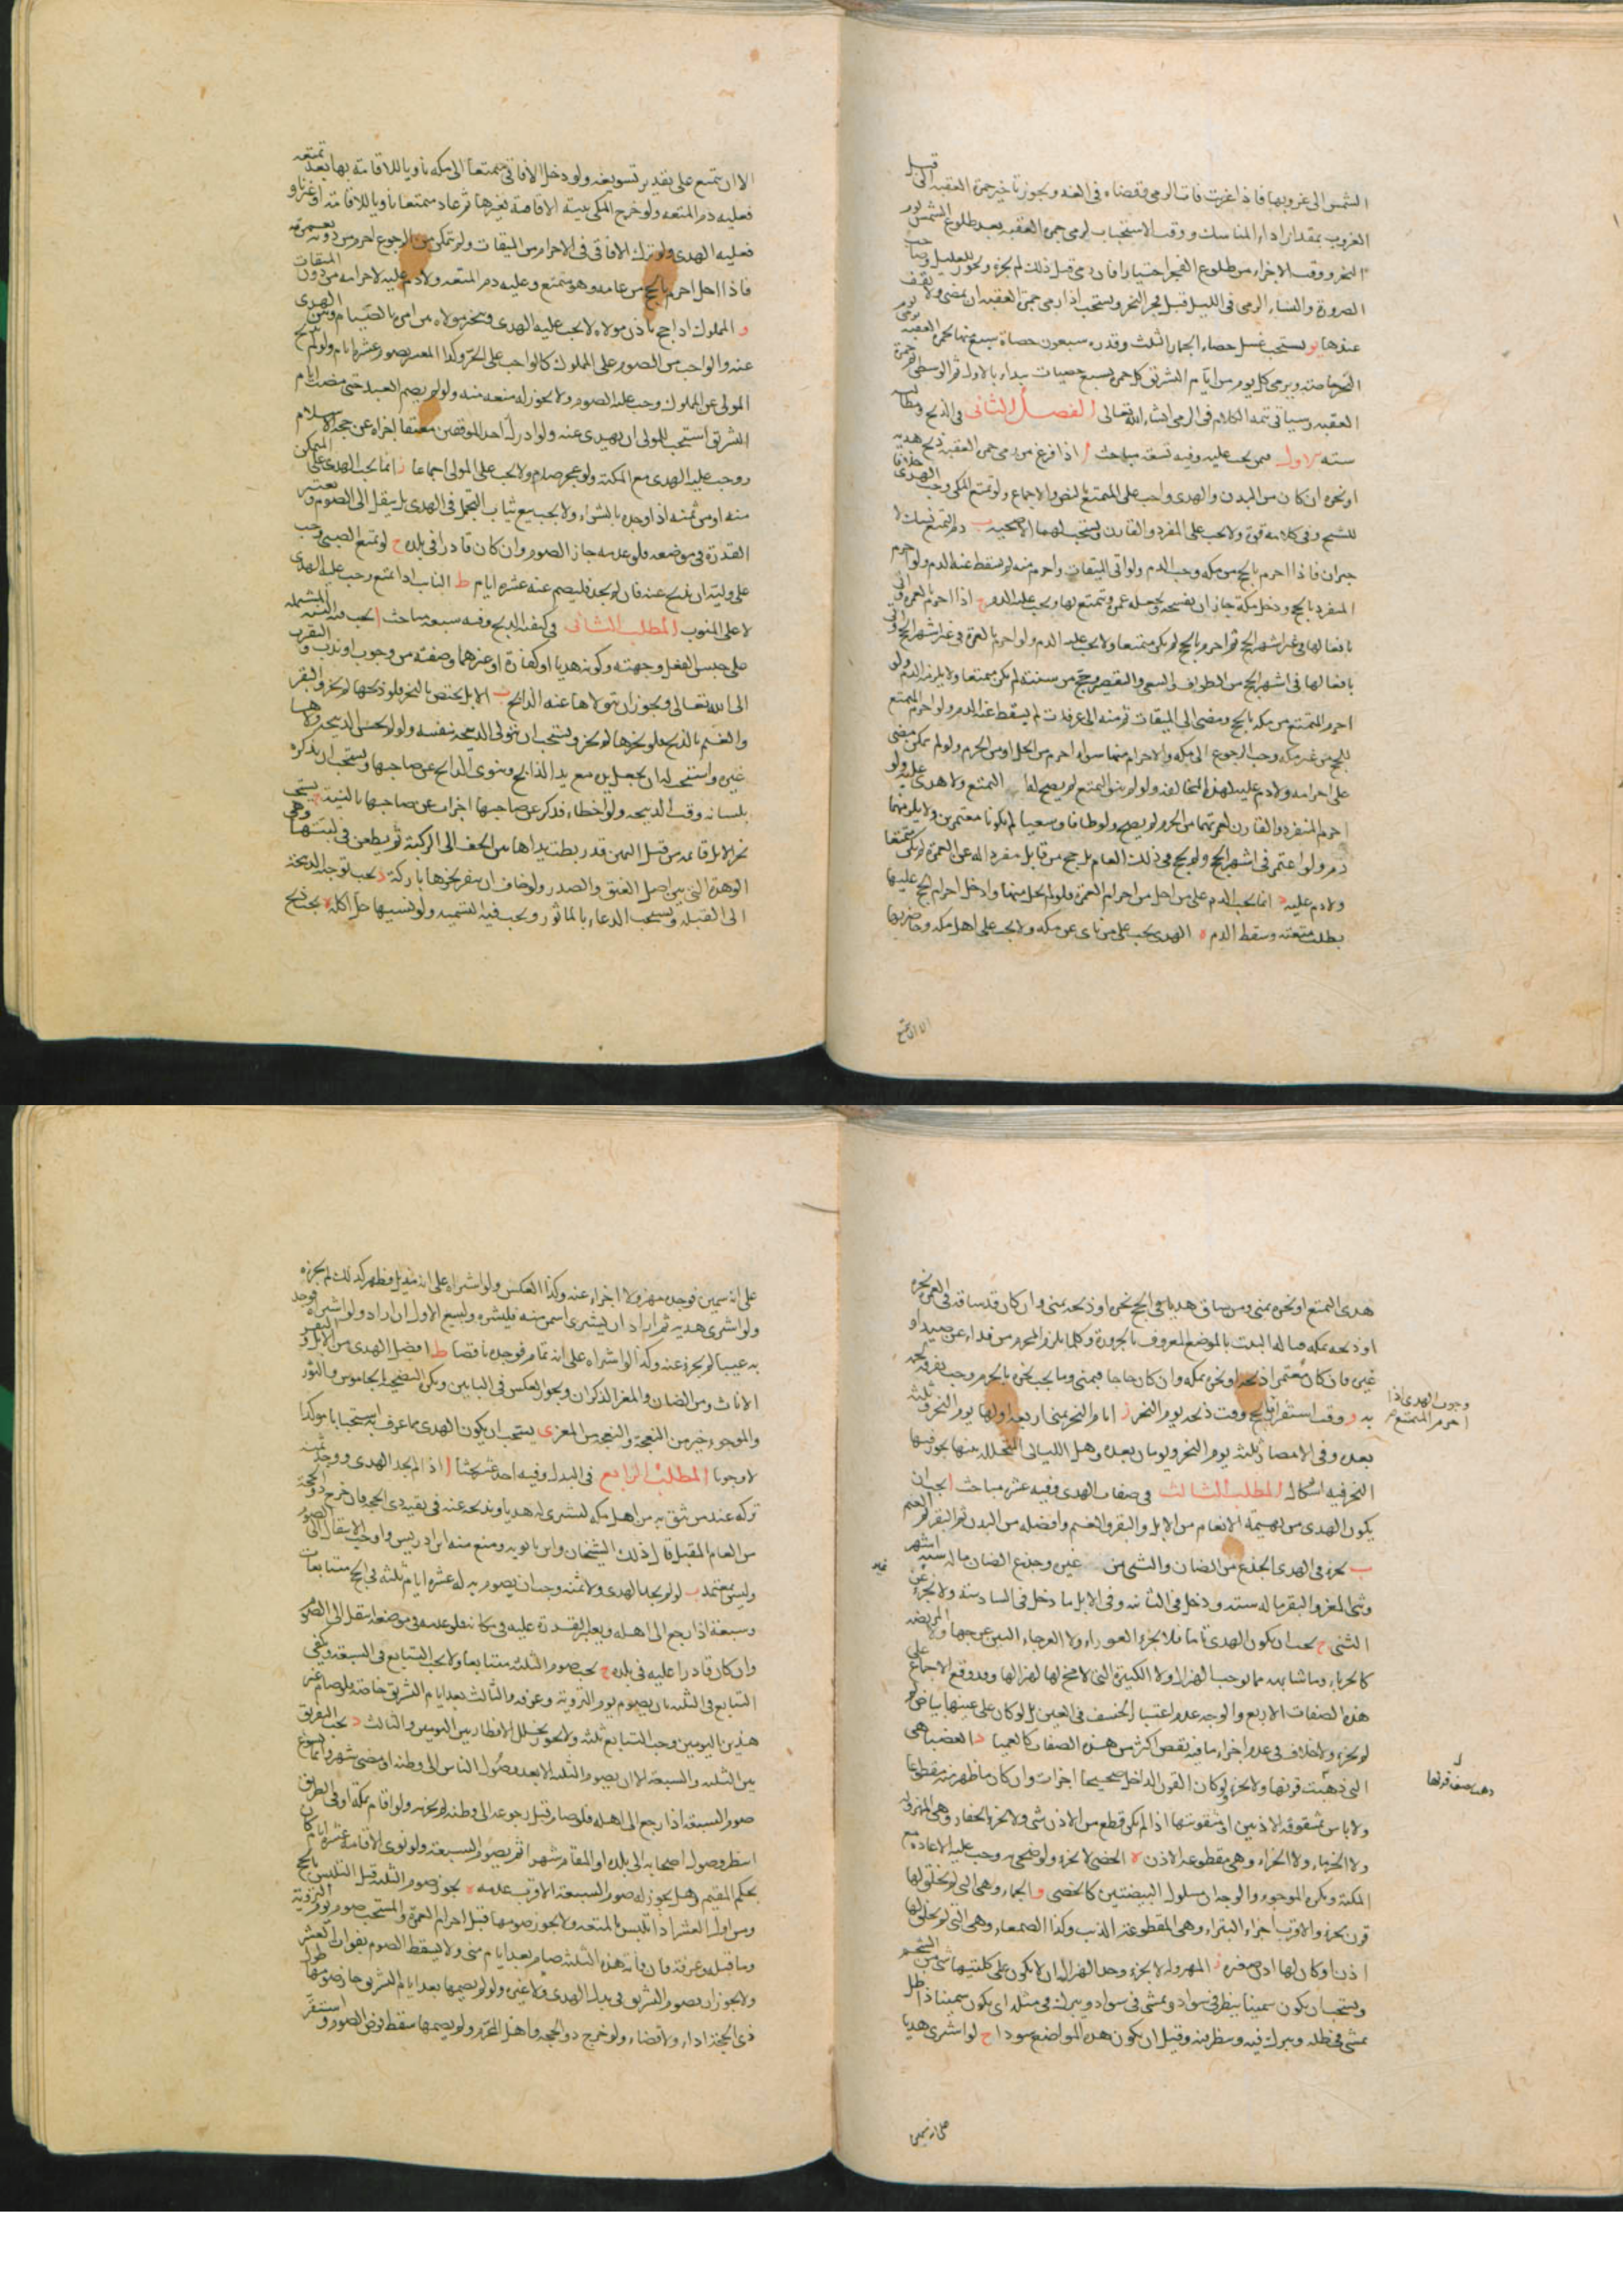 الشمس الى غروبها فاذا غربت فات الرمى وقضاه فى الغد ويجوز تاخير جمرة العقبة الى قبل
الغروب بمقدار اداء المناسك ووقت الاستحباب لرمى جمرة العقبة بعد طلوع الشمس يوم
النحر ووقت الاجزاء من طلوع الفجر اختيارا فان رمى قبل ذلك لم يجزه ويجوز للعليل وصاحب
الضرورة والنساء الرمى فى الليل قبل فجر النحر ويستحب اذا رمى جمرة العقبة ان يمضى ولا يقف
عندها يو يستحب غسل حصاء الجمار الثلث وقدره سبعون حصاة سبع منها لجمرة العقبة يرمى يوم
النحر خاصة ويرمى كل يوم من ايام التشريق كل جمرة بسبع حصيات يبداء بالاولى ثم الوسطى ثم جمرة
العقبة وسياتى تتمة الكلام فى الرمى انشاء الله تعالى الفصل الثانى فى الذبح ومطالبه
ستة الاول فمن يجب عليه وفيه تسعة مباحث ا اذا فرغ من رمى جمرة العقبة ذبح هديه
او نحره ان كان من البدن والهدى واجب على المتمتع بالنص والاجماع ولو تمتع المكى وجب الهدى خلافا
للشيخ وفى كلامه قوة ولا يجب على المفرد والقارن ويستحب لهما الاضحية ب دم التمتع نسك لا
جبران فاذا احرم بالحج من مكة وجب الدم ولو اتى الميقات واحرم منه لم يسقط عنه الدم ولو احرم
المفرد بالحج ودخل مكة جاز ان يفسخه ويجعله عمرة ويتمتع بها ويجب عليه الدم ج اذا احرم بالعمرة واتى
بافعالها فى غير اشهر الحج ثم احرم بالحج لم يكن متمتعا ولا يجب عليه الدم ولو احرم بالعمرة فى غير اشهر الحج واتى
بافعالها فى اشهر الحج من الطواف والسعى والتقصير وحج من سنته لم يكن متمتعا ولا يلزمه الدم ولو
احرم المتمتع من مكة بالحج ومضى الى الميقات ثم منه الى عرفات لم يسقط عنه الدم ولو احرم المتمتع
بالحج من غير مكة وجب الرجوع الى مكة والاحرام منها سواء احرم من الحل او من الحرم ولو لم يمكن مضى
على احرامه ولا دم عليه لهذه المخالفة ولو لم ينو التمتع لم يصح التمتع ولا هدى عليه ولو
احرم المنفرد والقارن لعمرتهما من الحرم لم يصح ولو طافا وسعيا لم يكونا معتمرين ولا يلزمهما
دم ولو اعتمر فى اشهر الحج ولم يحج فى ذلك العام بل حج من قابل مفردا له عن العمرة لم يكن متمتعا
ولا دم عليه د انما يجب الدم على من احل من احرام العمرة فلو لم يحل منها وادخل احرام الحج عليها
بطلت متعته وسقط الدم ه الهدى يجب على من ناى عن مكة ولا يجب على اهل مكة وحاضريها
الا ان يتمتع
الا ان يتمتع على تقدير تسويغه ولو دخل الافاقى متمتعا الى مكة ناويا للاقامة بها بعد تمتعه
فعليه دم المتعة ولو خرج المكى بنية الاقامة بغيرها ثم عاد متمتعا ناويا للاقامة او غير ناو
فعليه الهدى ولو ترك الافاقى فى الاحرام من الميقات ولم يتمكن من الرجوع احرم من دونه بعمرته
فاذا احل احرم بالحج من عامه وهو متمتع وعليه دم المتعة ولا دم عليه لاحرامه من دون الميقات
و المملوك اذا حج باذن مولاه لا يجب عليه الهدى ويتخير مولاه بين امره بالصيام وبين الهدى
عنه والواجب من الصوم على المملوك كالواجب على الحر وكذا المعسر يصوم عشرة ايام ولو لم يذبح
المولى عن المملوك وجب عليه الصوم ولا يجوز له منعه منه ولو لم يصم العبد حتى مضت ايام
التشريق استحب للمولى ان يهدى عنه ولو ادرك احد الموقفين معتقا اجزاه عن حجة الاسلام
ووجب عليه الهدى مع المكنة ولو عجز صام ولا يجب على المولى اجماعا ز انما يجب الهدى على المتمكن
منه او من ثمنه اذا وجده بالشراء ولا يجب بيع ثياب التجمل فى الهدى بل ينتقل الى الصوم ويعتبر
القدرة فى موضعه فلو عدمه جاز الصوم وان كان قادرا فى بلده ح لو تمتع الصبى وجب
على وليه ان يذبح عنه فان لم يجد فليصم عنه عشرة ايام ط النايب اذا تمتع وجب عليه الهدى
لا على المنوب المطلب الثانى فى كيفية الذبح وفيه سبعة مباحث ا يجب فيه النية المشتملة
على جنس الفعل وجهته وكونه هديا او كفارة او غيرهما وصفته من وجوب او ندب والتقرب
الى الله تعالى ويجوز ان يتولاها عنه الذابح ب الابل يختص بالنحر فلو ذبحها لم يجز والبقر
والغنم بالذبح فلو نحرها لم يجز ويستحب ان يتولى الذبيحة بنفسه ولو لم يحسن الذبيحة ولاها
غيره واستحب له ان يجعل يده مع يد الذابح وينوى الذابح عن صاحبها ويستحب ان يذكره
بلسانه وقت الذبيحة ولو اخطاء فذكر غير صاحبها اجزات عن صاحبها بالنية ج يستحب
نحر الابل قائمة من قبل اليمين قد ربطت يداها من الخف الى الركبة ثم يطعن فى لبتها وهى
الوهدة التى بين اصل العنق والصدر ولو خاف ان ينفر نحرها باركة د يجب توجيه الذبيحة
الى القبلة ويستحب الدعاء بالماثور ويجب فيه التسمية ولو نسيها حل اكله ه يجب ذبح
هدى التمتع او نحره بمنى ومن ساق هديا فى الحج نحره او ذبحه بمنى وان كان قد ساقه فى العمرة نحره
او ذبحه بمكة قبالة البيت بالموضع المعروف بالحزورة وكلما يلزم المحرم من فداء عن صيد او
غيره فان كان معتمرا ذبحه او نحره بمكة وان كان حاجا فبمنى وما يجب نحره بالحرم وجب تفرقة لحمه
به و وقت استقرار الحج وقت ذبحه يوم النحر ز ايام النحر بمنى اربعة اولها يوم النحر وثلثة
بعده وفى الامصار ثلثة يوم النحر ويومان بعده وهل الليالى المتخللة بينها يجوز فيها
النحر فيه اشكال المطلب الثالث فى صفات الهدى وفيه عشرة مباحث ا يجب ان
يكون الهدى من بهيمة الانعام من الابل والبقر والغنم وافضله من البدن ثم البقر ثم الغنم
ب يجزى فى الهدى الجذع من الضان والثنى من غيره وجذع الضان ما له ستة اشهر
وثنى المعز والبقر ما له سنة ودخل فى الثانية وفى الابل ما دخل فى السادسة ولا يجزى غير
الثنى ج يجب ان يكون الهدى تاما فلا يجزى العوراء ولا العرجاء البين عرجها ولا المريضة
كالجرباء وما شابهه مما يوجب الهزال ولا الكبيرة التى لا مخ لها لهزالها وقد وقع الاجماع على
هذه الصفات الاربع والوجه عدم اعتبار الخسف فى العين بل لو كان على عينها بياض لم
لم يجزى ولا خلاف فى عدم اجزاء ما فيه نقص اكثر من هذه الصفات كالعميا د العضباء هى
التى ذهبت قرنها ولا يجزى ولو كان القرن الداخل صحيحا اجزات وان كان ما ظهر منه مقطوعا
ولا باس بمشقوقة الاذنين او مثقوبتها اذا لم يكن قطع من الاذن شى ولا يجزى العجفاء وهى المهزولة
ولا الخرماء ولا الجذاء وهى مقطوعة الاذن ه الخصى لا يجزى ولو ضحى به وجب عليه الاعادة مع
المكنة ويكره الموجوء والوجه ان مسلول البيضتين كالخصى و الجماء وهى التى لم يخلق لها
قرن يجزى والاقرب اجزاء البتراء وهى المقطوعة الذنب وكذا الصمعاء وهى التى لم يخلق لها
اذن او كان لها اذن صغيرة ز المهزولة لا يجزى وحد الهزال ان لا يكون على كليتيها شى من الشحم
ويستحب ان يكون سمينا ينظر فى سواد ويمشى فى سواد ويبرك فى مثله اى يكون سمينا ذا ظل
يمشى فى ظله ويبرك فيه وينظر منه وقيل ان يكون هذه المواضع سودا ح لو اشترى هديا
وجوب الهدى اذا
احرم المتمتع
على انه سمين
على انه سمين فوجده مهزولا اجزاء عنه وكذا العكس ولو اشتراه على انه مهزول فظهر كذلك لم يجزه
ولو اشترى هديه ثم اراد ان يشترى اسمن منه فليشتره وليبع الاول ان اراد ولو اشتراه فوجد
به عيبا لم يجزى عنه وكذا لو اشتراه على انه تمام فوجده ناقصا ط افضل الهدى من الابل والبقر
الاناث ومن الضان والمعز الذكران ويجوز العكس فى البابين ويكره التضحية بالجاموس والثور
والموجوء خير من النعجة والنعجة من المعز ى يستحب ان يكون الهدى مما عرف به استحبابا موكدا
لا وجوبا المطلب الرابع فى البدل وفيه احد عشر بحثا ا اذا لم يجد الهدى ووجد ثمنه
تركه عند من يثق به من اهل مكة ليشترى له هديا ويذبحه عنه فى بقية ذى الحجة فان خرج ذو الحجة
من العام المقبل قال ذلك الشيخان وابن بابويه ومنع منه ابن ادريس واوجب الانتقال الى الصوم
وليس بمعتمد ب لو لم يجد الهدى ولا ثمنه وجب ان يصوم بدله عشرة ايام ثلثة فى الحج متتابعات
وسبعة اذا رجع الى اهله ويعتبر القدرة عليه فى مكانه فلو عدمه فى موضعه انتقل الى الصوم
وان كان قادرا عليه فى بلده ج يجب صوم الثلثة متتابعا ولا يجب التتابع فى السبعة ويكفى
التتابع فى الثلثة بان يصوم يوم التروية وعرفة والثالث بعد ايام التشريق خاصة ولو صام غير
هذين اليومين وجب التتابع ثلثة ولا يجوز تخلل الافطار بين اليومين والثالث د يجب التفريق
بين الثلثة والسبعة الا ان يصوم الثلثة الا بعد وصول الناس الى وطنه او مضى شهر وانما يسوغ
صوم السبعة اذا رجع الى اهله فلو صام قبل رجوعه الى وطنه لم يجزه ولو اقام بمكة او فى الطريق
انتظر وصول اصحابه الى بلده او المقام شهرا ثم يصوم السبعة ولو نوى الاقامة عشرة ايام كان
بحكم المقيم وهل يجوز له صوم السبعة الاقرب عدمه ه يجوز صوم الثلثة قبل التلبس بالحج
ومن اول العشر اذا تلبس بالمتعة ولا يجوز صومها قبل احرام العمرة والمستحب صوم يوم التروية
وما قبله وعرفة فان فاته هذه الثلثة صام بعد ايام منى ولا يسقط الصوم بفوات العشر
ولا يجوز ان يصوم التشريق فى بدل الهدى ولا غيره ولو لم يصمها بعد ايام التشريق جاز صومها طول
ذى الحجة اداء ولا قضاء ولو خرج ذو الحجة واهل المحرم ولم يصمها سقط فرض الصوم واستقر